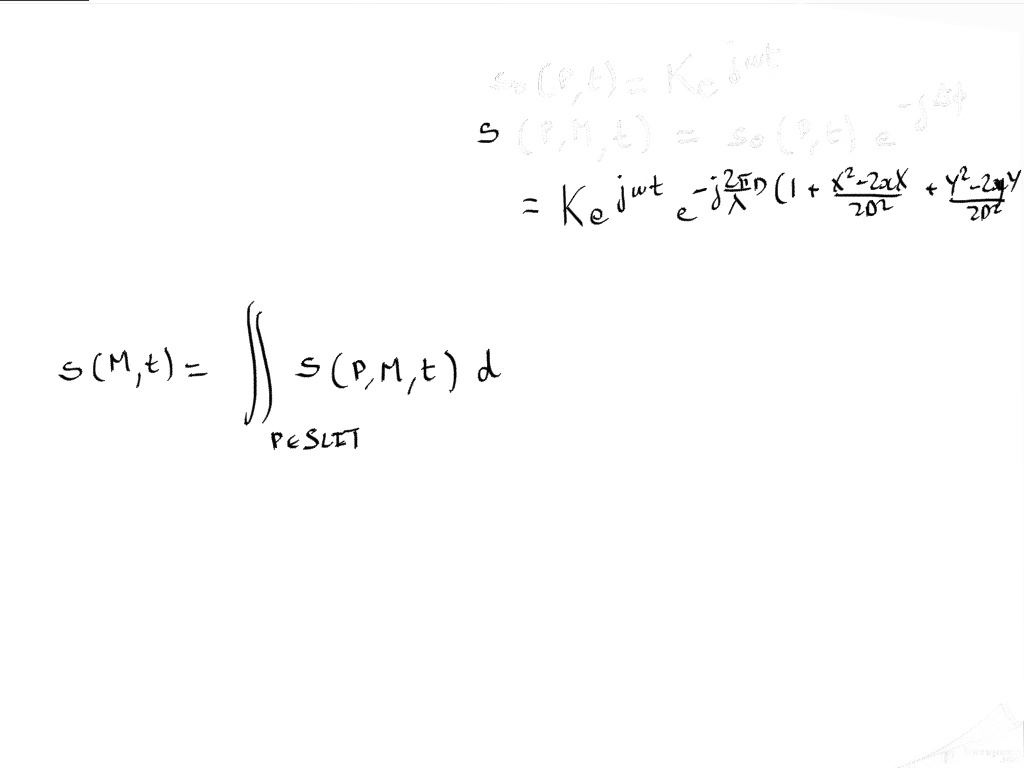 s₀(P,t) = K e^{jωt}
s(P,M,t) = s₀(P,t) e^{-jΔφ}
= K e^{jωt} e^{-j\frac{2π}{λ}D(1 + \frac{X²-2xX}{2D²} + \frac{Y²-2yY}{2D²}}
s(M,t) = ∬ s(P,M,t) d
P∈SLIT